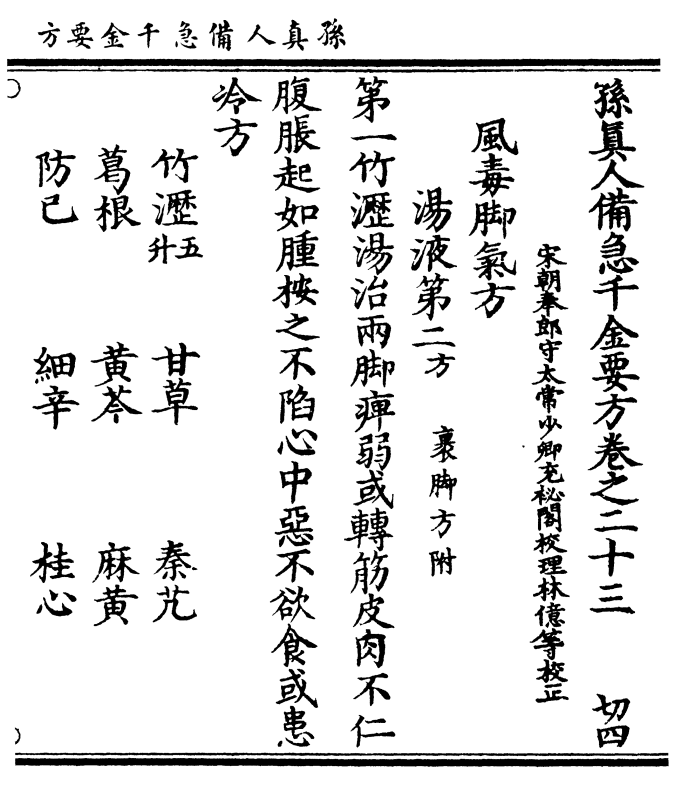 孫真人備急千金要方
孫真人備急千金要方卷之二十三　切四
宋朝奉郎守太常少卿充祕閣校理林億等校正
風毒脚氣方
湯液第二方　裹脚方附
第一竹瀝湯治兩脚痺弱或轉筋皮肉不仁
腹脹起如腫桉之不陷心中惡不欲食或患
冷方
竹瀝五升　甘草　秦艽
葛根　黄芩　麻黄
防已　細辛　桂心